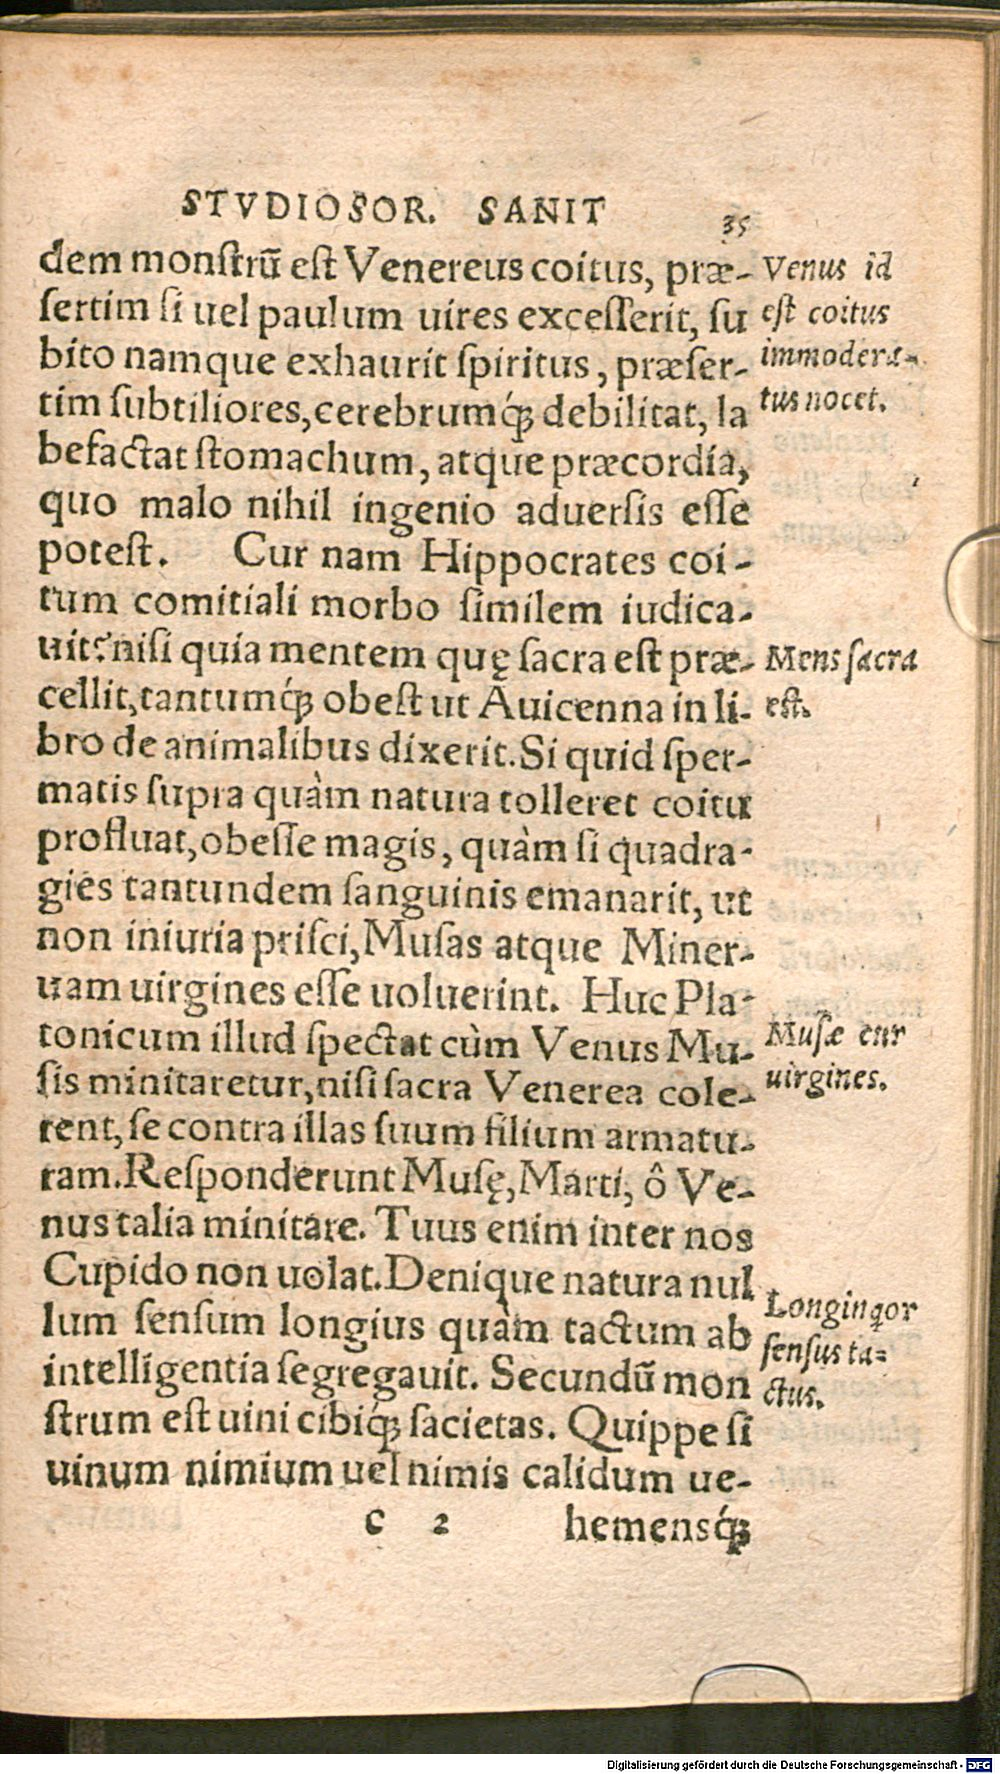 STVDIOSOR. SANIT
35
dem monstrũ est Venereus coitus, præ-
sertim si uel paulum uires excesserit, su
bito namque exhaurit spiritus, præser-
tim subtiliores, cerebrumq́; debilitat, la
befactat stomachum, atque præcordia,
quo malo nihil ingenio aduersis esse
potest. Cur nam Hippocrates coi-
tum comitiali morbo similem iudica-
uit? nisi quia mentem quę sacra est præ-
cellit, tantumq́; obest ut Auicenna in li-
bro de animalibus dixerit. Si quid sper-
matis supra quàm natura tolleret coitu
profluat, obesse magis, quàm si quadra-
gies tantundem sanguinis emanarit, ut
non iniuria prisci, Musas atque Miner-
uam uirgines esse uoluerint. Huc Pla-
tonicum illud spectat cùm Venus Mu-
sis minitaretur, nisi sacra Venerea cole-
rent, se contra illas suum filium armatu-
ram. Responderunt Musę, Marti, ô Ve-
nus talia minitare. Tuus enim inter nos
Cupido non uolat. Denique natura nul
lum sensum longius quàm tactum ab
intelligentia segregauit. Secundũ mon
strum est uini cibiq́; sacietas. Quippe si
uinum nimium uel nimis calidum ue-
C 2 hemensq́;
Venus id
est coitus
immodera-
tus nocet.
Mens sacra
est.
Musæ cur
uirgines.
Longinqor
sensus ta=
ctus.
Digitalisierung gefördert durch die Deutsche Forschungsgemeinschaft - DFG